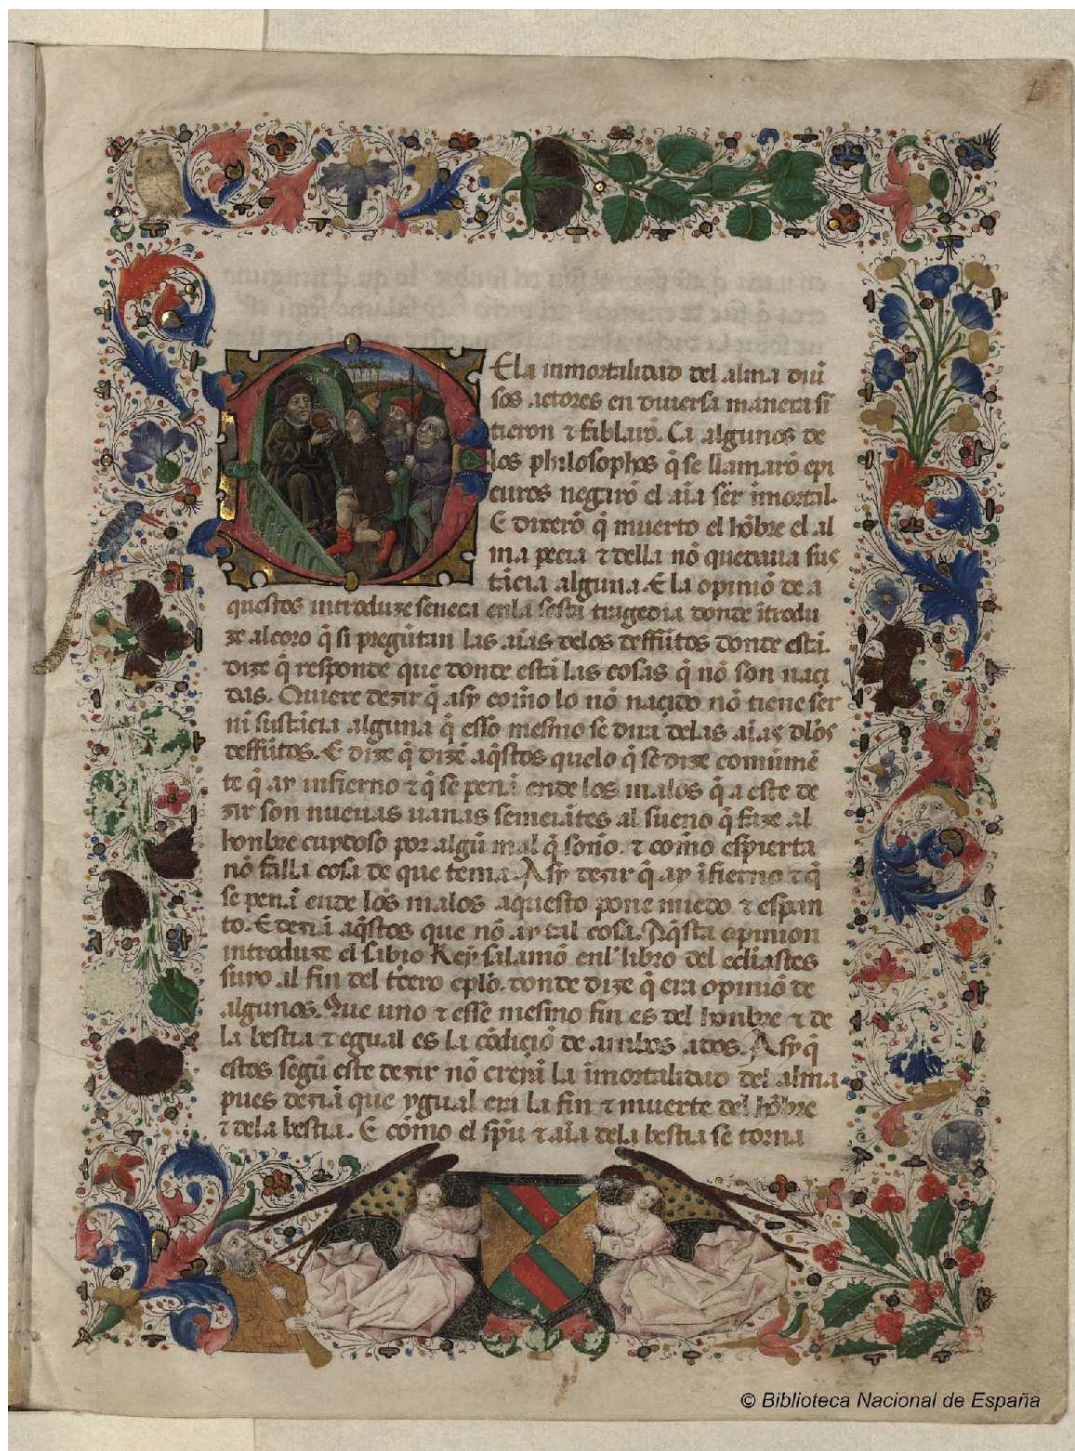 Ela inmortalidad del alma diui
sos actores en diuersa manera sĩ
tieron ⁊ fablarō. Ca algunos de
los philosophos q̃ se llamarō epi
curos negarō el aĩa ser ĩmortal.
E dixerō q̃ muerto el hõbre el al
ma pecia ⁊ della nõ quedaua sus
tãcia alguna. E la opiniõ de a
questos introduze seneca enla sesta tragedia donde ĩtrodu
ze al coro q̃ si pregũtan las aĩas delos deffũtos donde estã.
dize q̃ responde que donde estã las cosas q̃ nõ son naçi
das. Quiere dezir q̃ asy com̃o lo nõ naçido nõ tiene ser
ni sustãcia alguna q̃ esso mesmo se dira delas aĩas dlos
deffũtos. E dize q̃ dizẽ aq̃stos quelo q̃ se dize comũmẽ
te q̃ ay infierno ⁊ q̃ se penã ende los malos q̃ a este de
zir son nueuas uanas semejãtes al sueno q̃ faze al
honbre cuydoso por algũ mal q̃ soño. ⁊ como espierta
nõ falla cosa de que tema. Asy dezir q̃ ay ĩfierno ⁊ q̃
se penã ende los malos aquesto pone miedo ⁊ espan
to. E deziã aq̃stos que nõ ay tal cosa. Aq̃sta opinion
introduze el sabio Rey salamõ enl libro del ecliastes
suyo al fin del tercero cplõ. donde dize q̃ era opiniõ de
algunos. Que uno ⁊ esse mesmo fin es del honbre ⁊ de
la bestia ⁊ egual es la cõdiçiõ de anbos ados. Asy q̃
estos segũ este dezir nõ creyã la ĩmortalidad del alma
pues deziã que ygual era la fin ⁊ muerte del hõbre
⁊ dela bestia. E cõmo el spũ ⁊ aĩa dela bestia se torna
© Biblioteca Nacional de España